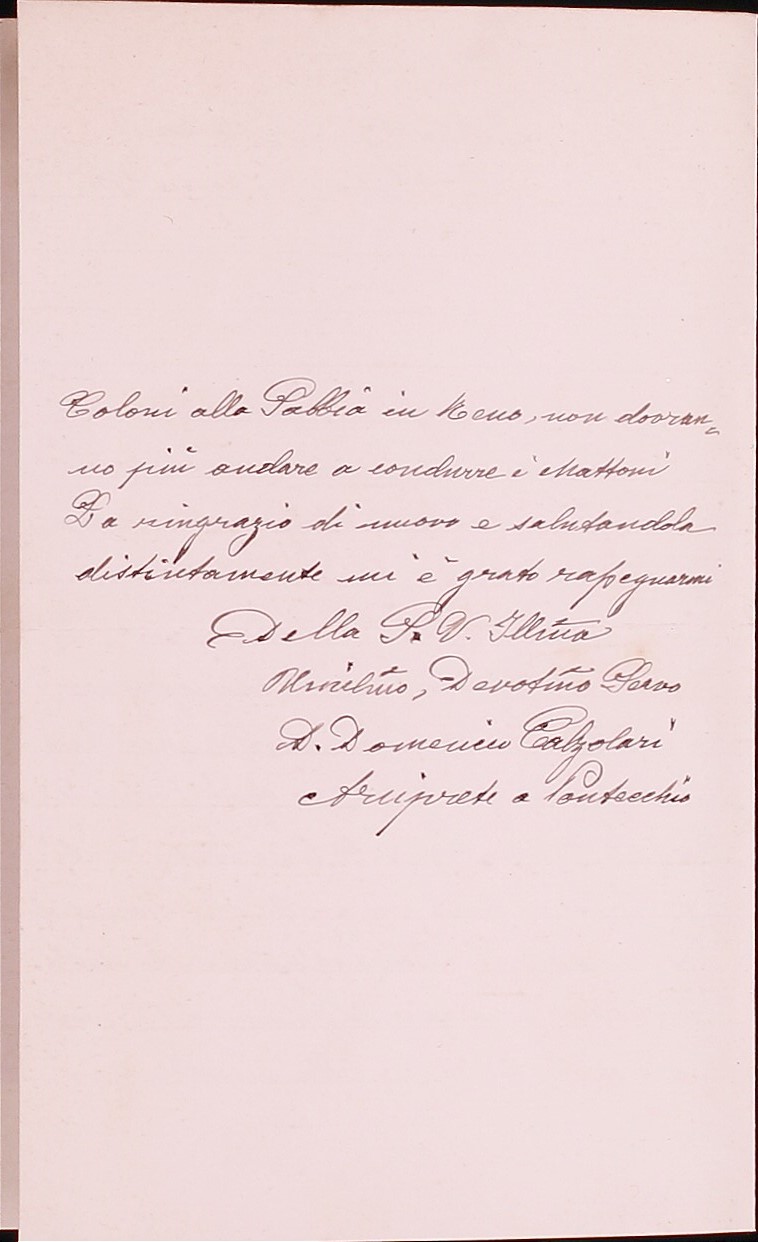 Coloni alla Sabbia in Reno, non dovran=
no più andare a condurre i Mattoni
La ringrazio di nuovo e salutandola
distintamente mi è grato rassegnarmi
Della S. V. Illma
Umilmo, Devotmo Servo
D. Domenico Calzolari
Arciprete a Pontecchio